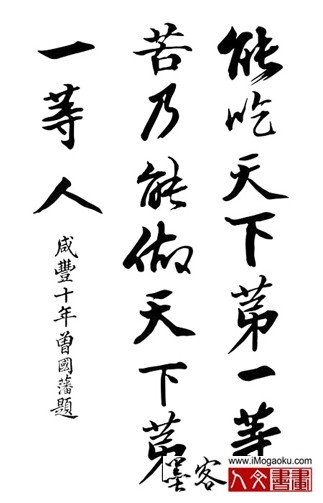 能吃天下第一等
苦乃能做天下第
一等人
咸豐十年曾國藩題
墨客
www.iMogaoku.com
人文書畫